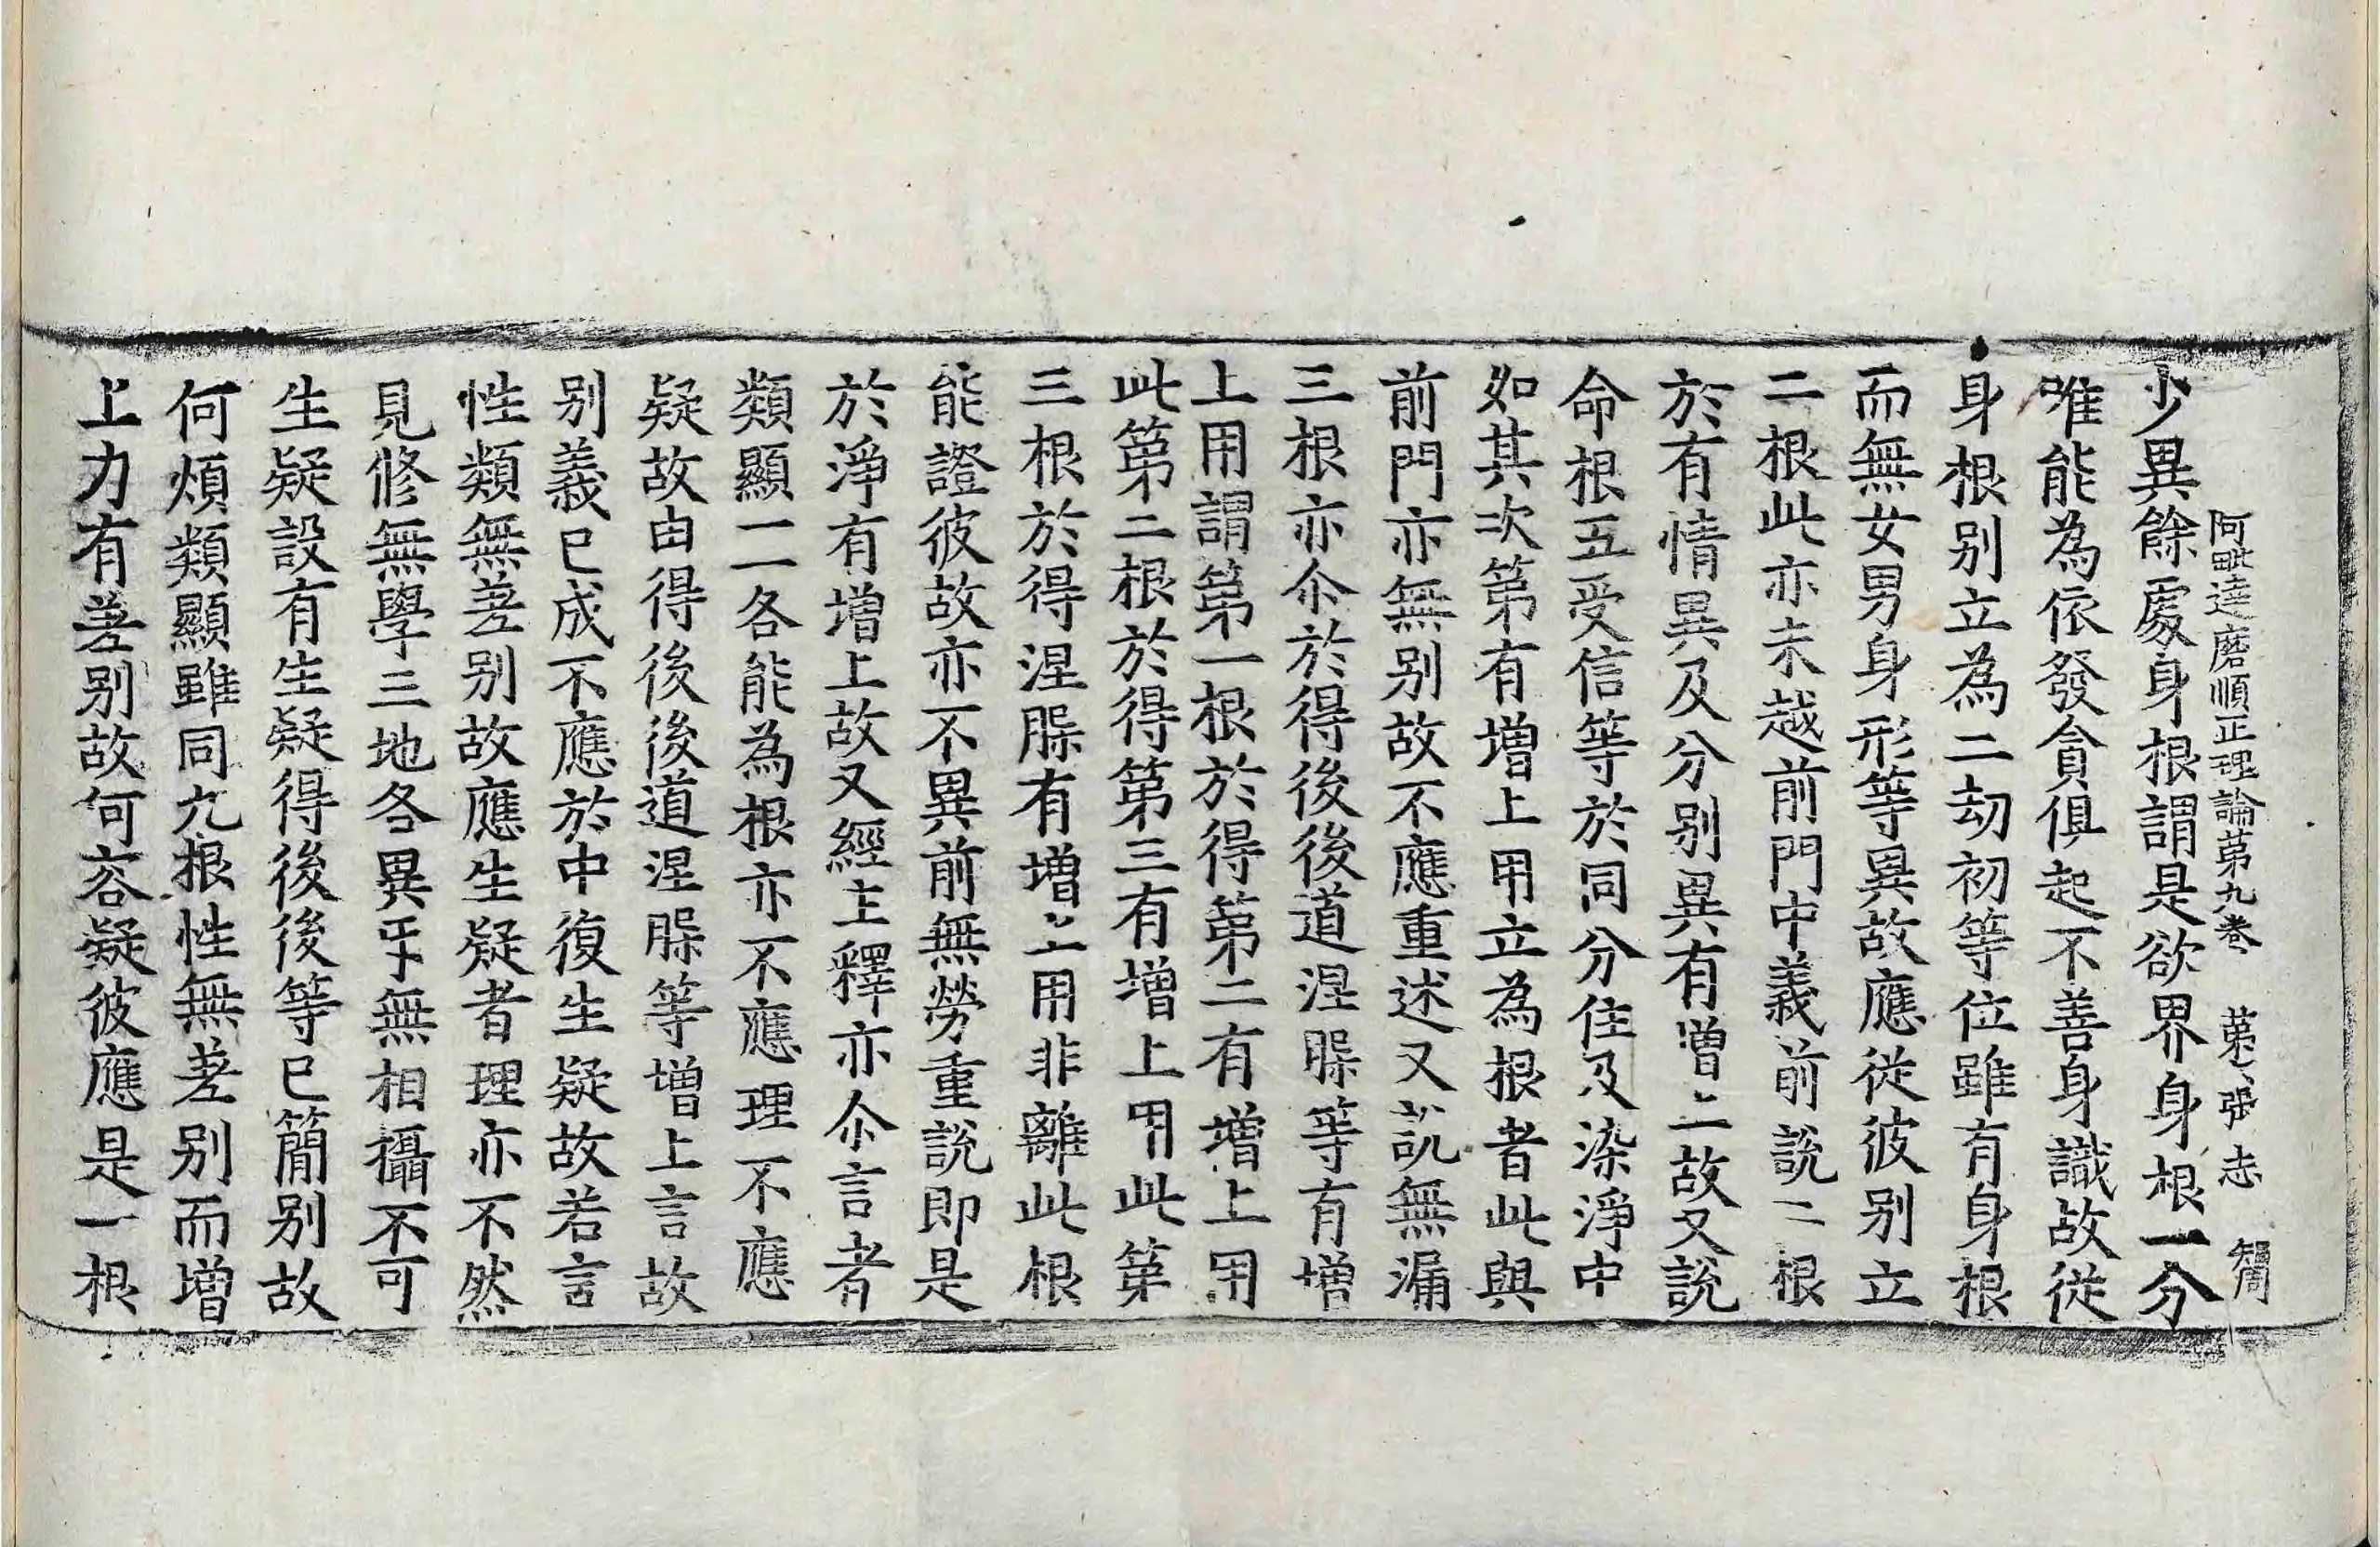 阿毗達磨順正理論第九卷 第六張 志
少異餘處身根謂是欲界身根一分
唯能為依發貪俱起不善身識故從
身根别立為二劫初等位雖有身根
而無女男身形等異故應從彼别立
二根此亦未越前門中義前說二根
於有情異及分别異有增上故又說
命根五受信等於同分住及染淨中
如其次第有增上用立為根者此與
前門亦無别故不應重述又說無漏
三根亦尒於得後後道涅槃等有增
上用謂第一根於得第二有增上用
此第二根於得第三有增上用此第
三根於得涅槃有增上用非離此根
能證彼故亦不異前無勞重說即是
於淨有增上故又經主釋亦尒言者
類顯一一各能為根亦不應理不應
疑故由得後後道涅槃等增上言故
别義已成不應於中復生疑故若言
性類無差别故應生疑者理亦不然
見修無學三地各異乎無相攝不可
生疑設有生疑得後後等已簡别故
何煩類顯雖同九根性無差别而增
上力有差别故何容疑彼應是一根